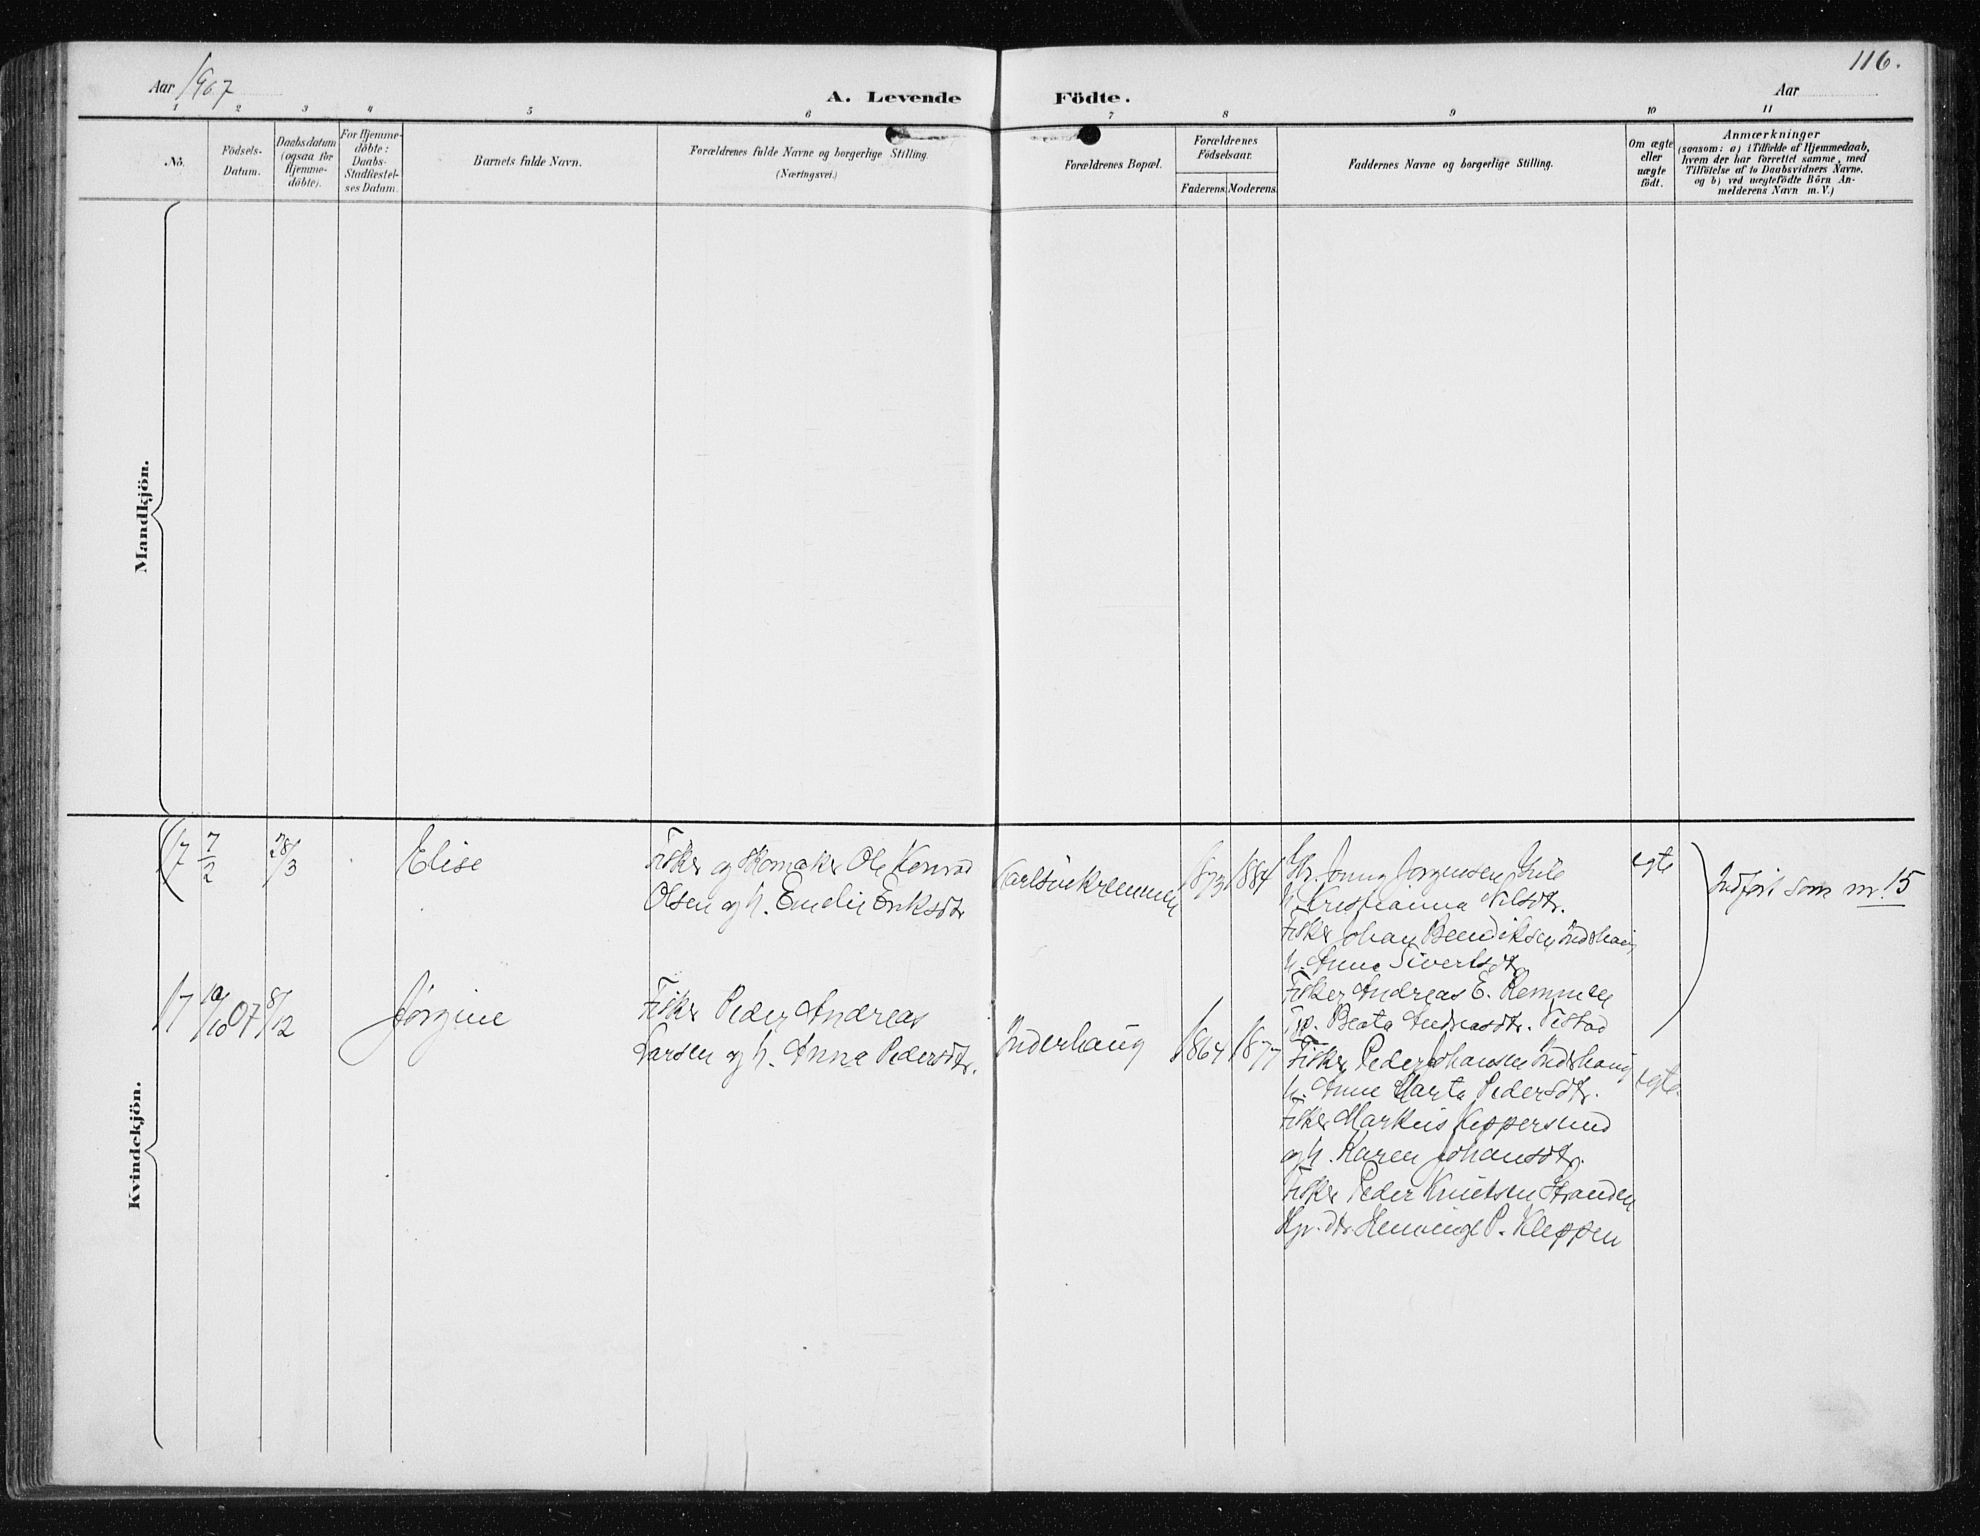 116.
Aar 1907
A. Levende Födte.
Aar
1 2 3 4 5 6 7 8 9 10 11
No.
Födsels-
Datum.
Daabsdatum
(ogsaa for
Hjemme-
döbte).
For Hjemme-
döbte:
Daabs-
Stadfæstel-
ses Datum.
Barnets fulde Navn.
Forældrenes fulde Navne og borgerlige Stilling.
(Næringsvei.)
Forældrenes Bopæl.
Forældrenes
Födselsaar.
Faderens. Moderens.
Faddernes Navne og borgerlige Stilling.
Om ægte
eller
uægte
födt.
Anmærkninger
(saasom: a) i Tilfælde af Hjemmedaab,
hvem der har forrettet samme, med
Tilföielse af to Daabsvidners Navne,
og b) ved uægtefödte Börn An-
melderens Navn m. V.)
Mandkjön.
Kvindekjön.
17
7/2
28/3
Elise
Fisker og Skomaker Ole Konrad
Olsen og h. Emelie Eriksdtr
1873 1884
Jørgensen
h. Kristianna Nilsdtr.
Fisker Johan Bendiksen Inderhaug
h. Anna Sivertsdtr.
Fisker Andreas E. Remmen
Beata Andreasdtr.
egte
Indført som nr. 15
17
10/10 07
8/12
Jørgine
Fisker Peder Andreas
Larsen og h. Anna Pedersdtr.
Inderhaug
1864 1877
Fisker Peder Johansen Inderhaug
h. Anne Marta Pedersdtr.
Fisker Markus
og h. Karen Johansdtr.
Fisker Peder Knutsen Stranden
P. Kleppen
egte.